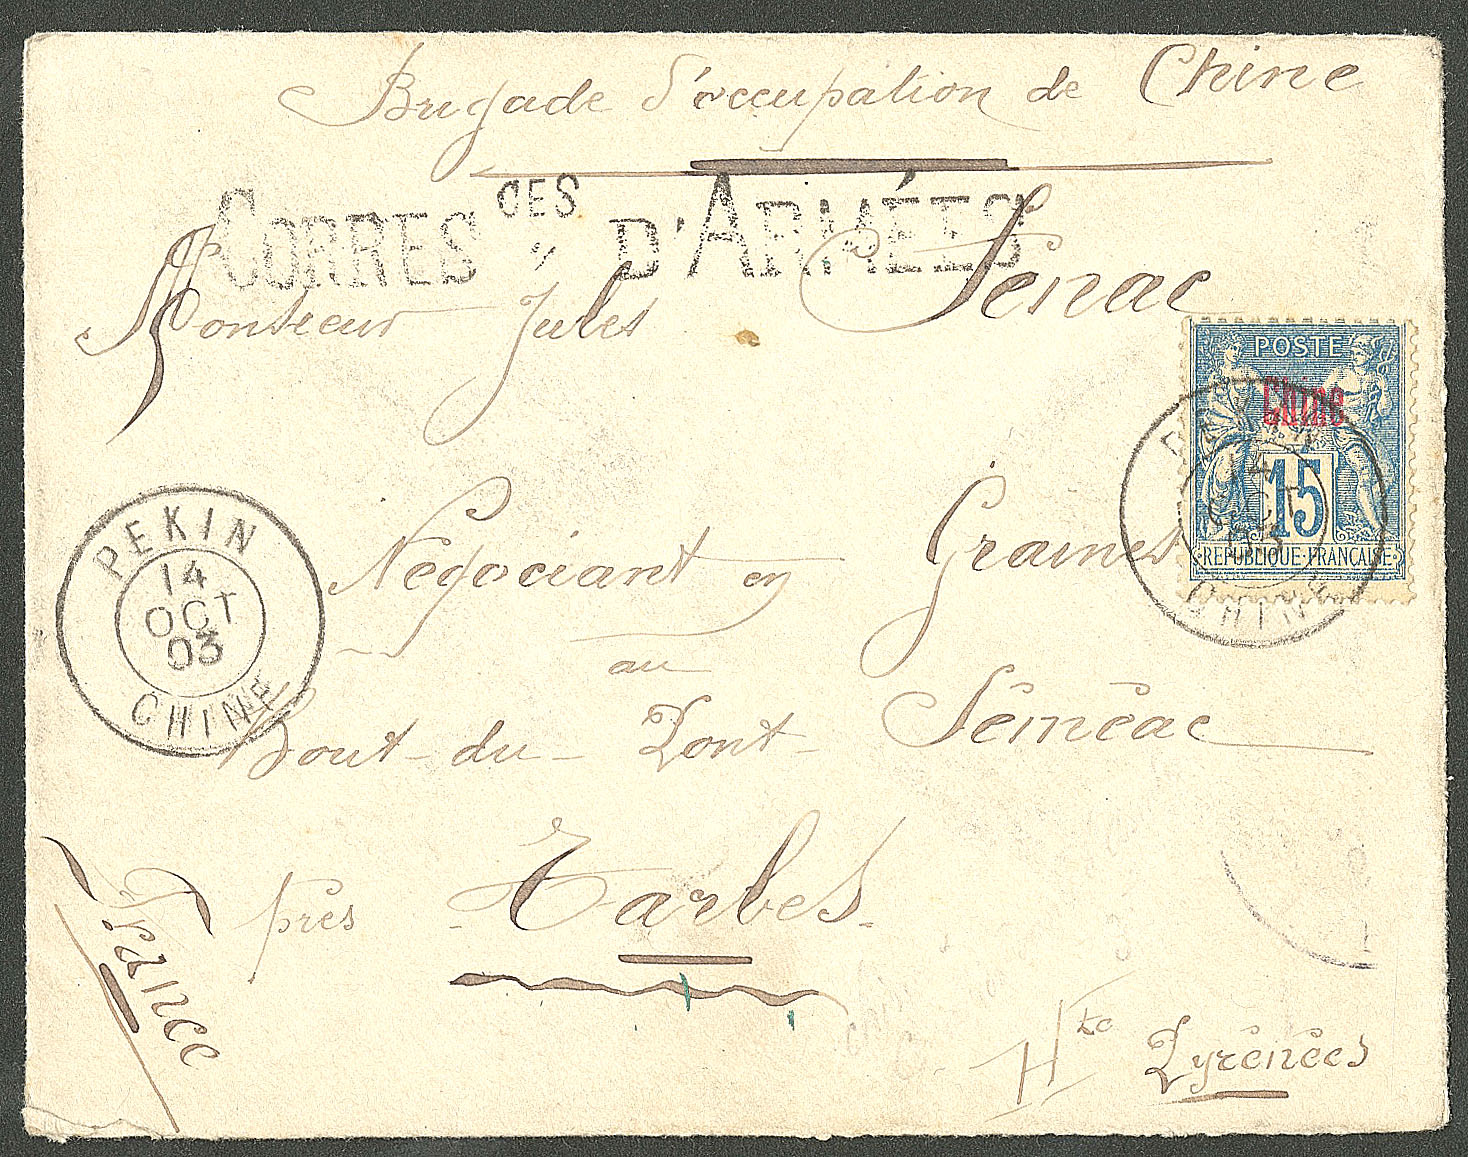 Brigade d'occupation de Chine
CORRES CES D'ARMÉES
Monsieur Jules Senac
POSTE
Chine
15
REPUBLIQUE FRANCAISE
PEKIN
14
OCT
03
CHINE
PEKIN
14
OCT
03
CHINE
Négociant en Graines
au
Bout-du-Pont-Séméac
près Tarbes.
France
Htes Pyrénées